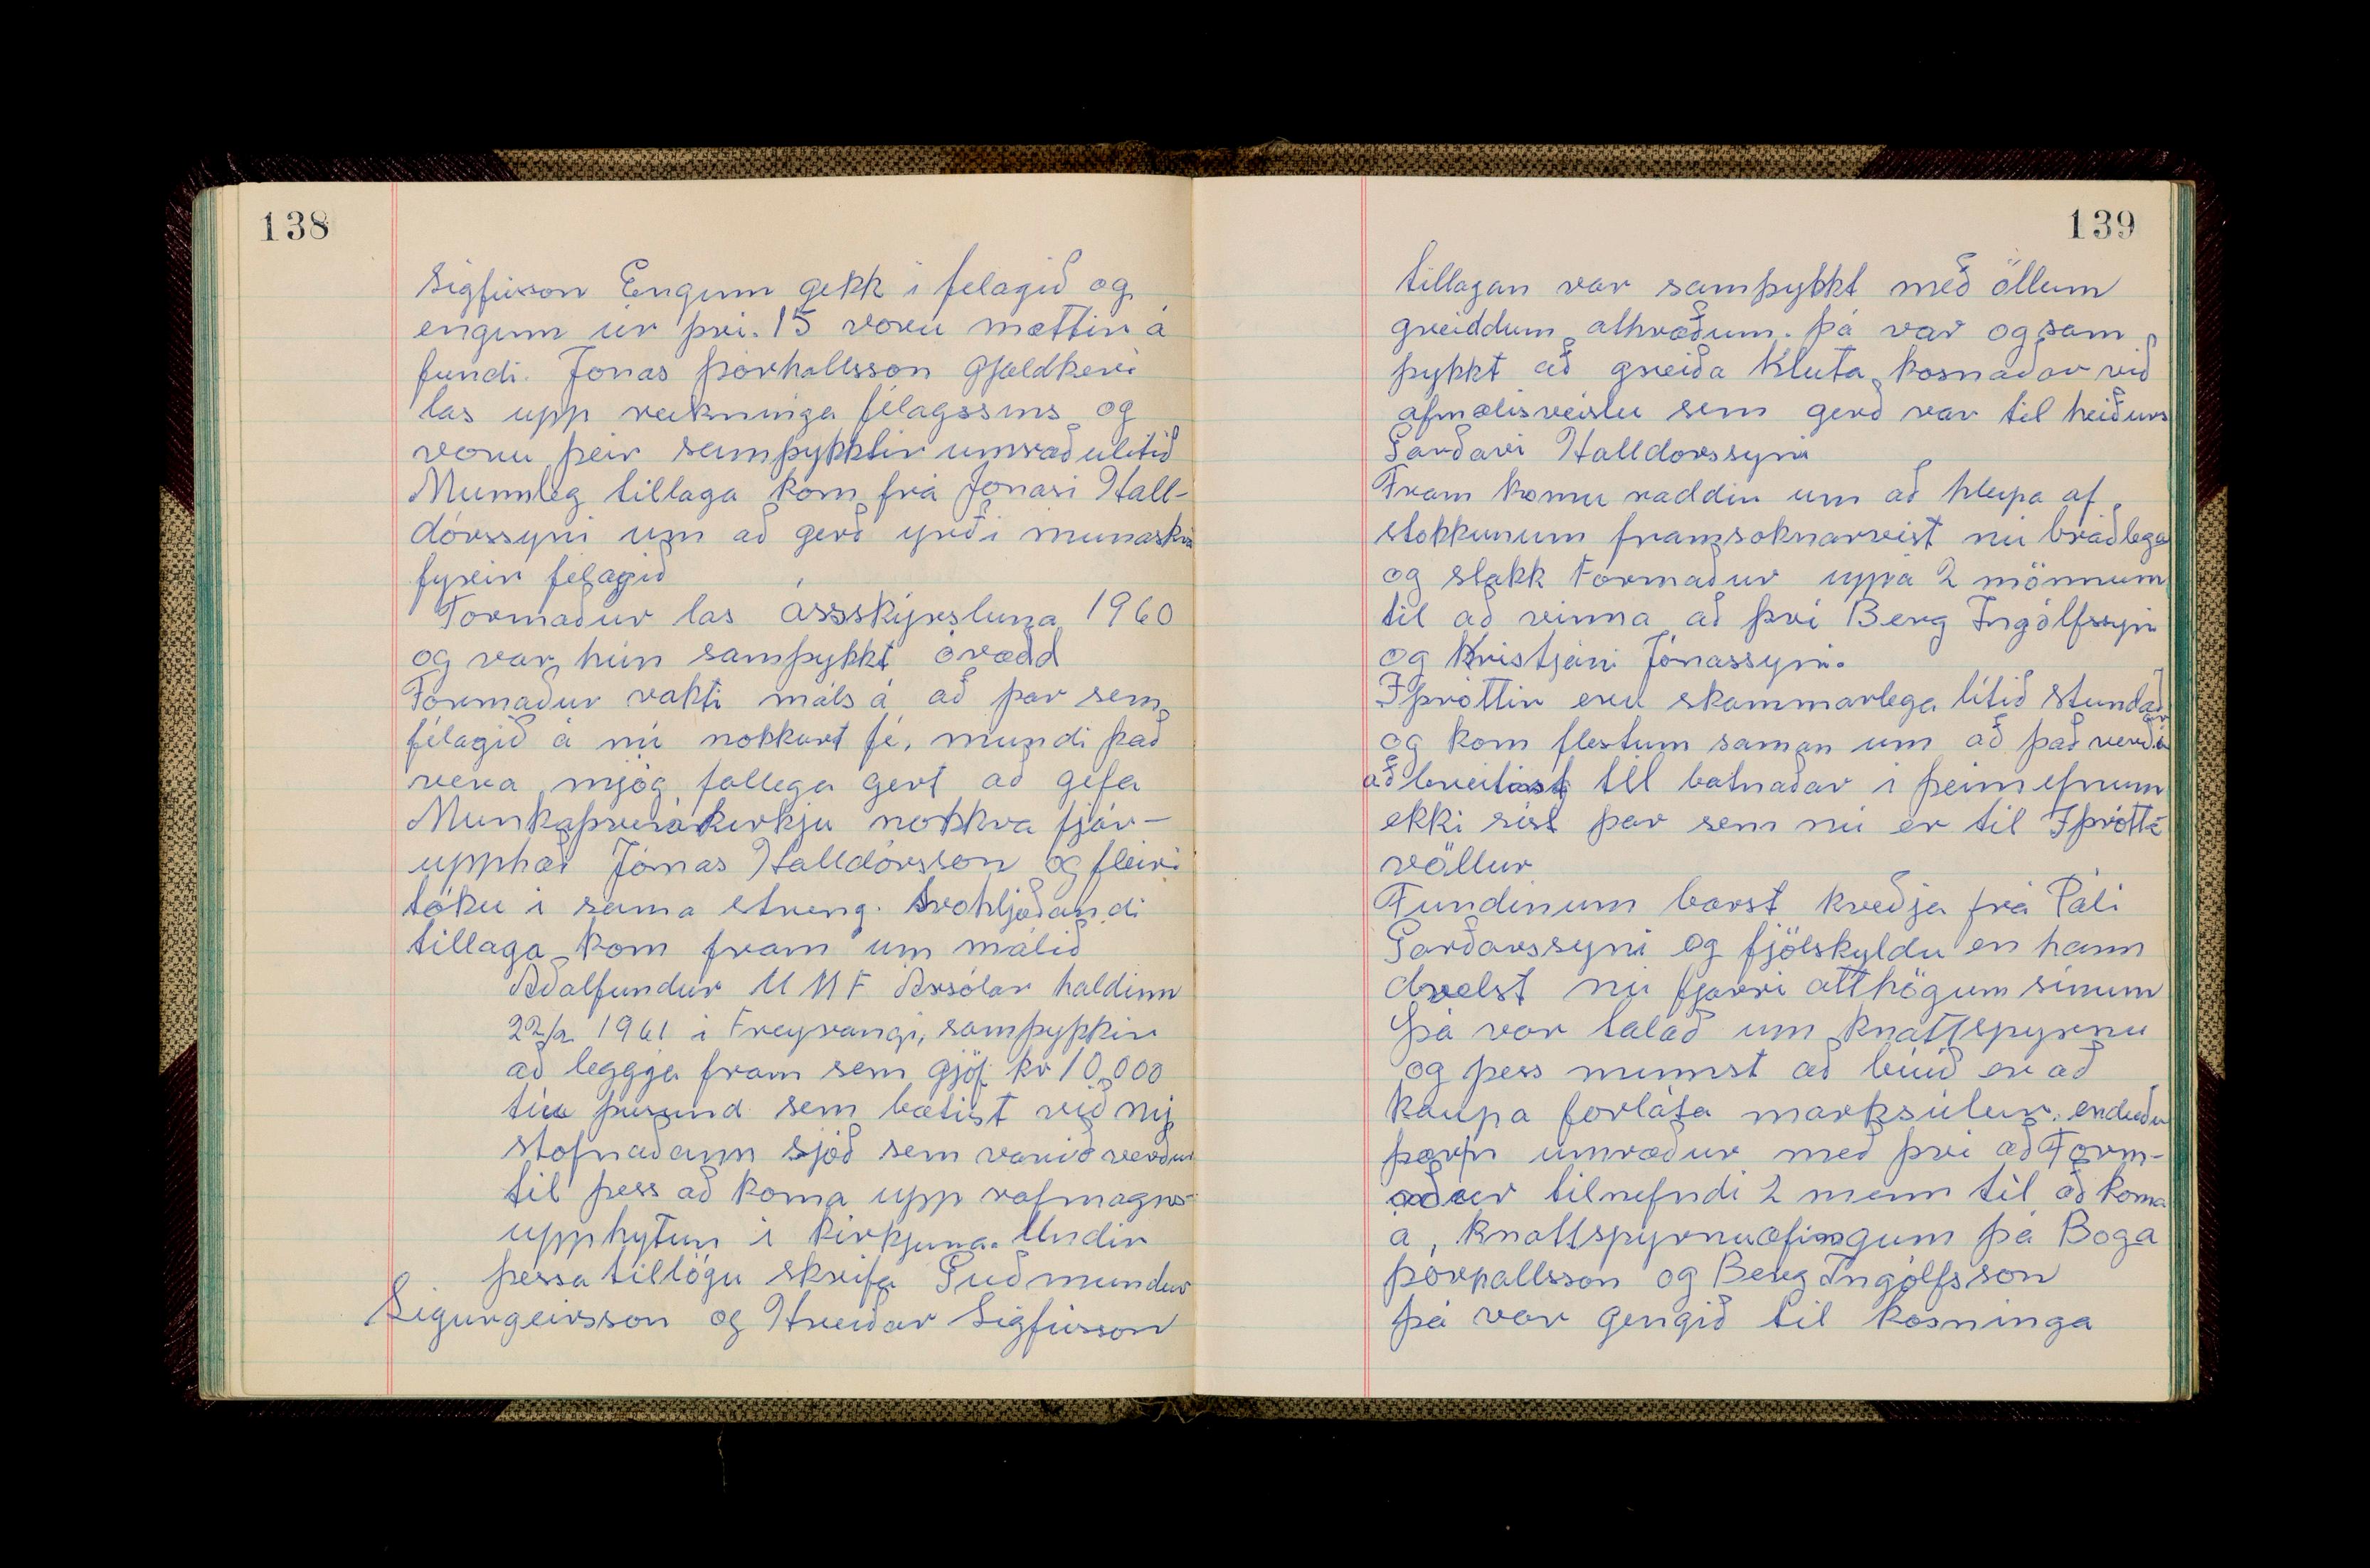 138
Sigfússon Engum gekk í felagið og
engum úr því. 15 voru mættir á
fundi. Jonas þórhallsson Gjaldkeri
las upp reikninga félagssins og
voru þeir samþykktir umræðulítið
Munnleg tillaga kom frá Jónasi Hall-
dórssyni um að gerð yrði munaskrá
fyrir félagið
Formaður las ássskýrsluna 1960
og var hún samþykkt órædd
Formaður vakti máls á að þar sem
félagið á nú nokkurt fé, mundi það
vera mjög fallega gert að gefa
Munkaþverárkirkju nokkra fjár-
upphæð Jónas Halldórsson og fleiri
tóku í sama streng. Svohljóðandi
tillaga kom fram um málið
Aðalfundur UMF Ársólar haldinn
22/2 1961 í Freyvangi, samþykkir
að leggja fram sem gjöf kr 10,000
tíu þusund sem bætist við ný
stofnaðann sjóð sem varið verður
til þess að koma upp rafmagns-
upphytun í kirkjuna. Undir
þessa tillögu skrifa Guðmundur
Sigurgeirsson og Hreiðar Sigfússon
139
tillagan var samþykkt með öllum
greiddum atkvæðum. þá var og sam
þykkt að greiða hluta kosnaðar við
afmælisveislu sem gerð var til heiðurs
Garðari Halldorssyni
Fram komu raddir um að hleypa af
stokkunum framsoknarvist nú bráðlega
og stakk Formaður uppá 2 mönnum
til að vinna að því Berg Ingólfssyni
og Kristjáni Jónassyni.
Iþróttir eru skammarlega lítið stundaðar
og kom flestum saman um að það verði
að breitast til batnaðar í þeim efnum
ekki síst þar sem nú er til Iþrótta
völlur
Fundinum barst kveðja frá Páli
Garðarssyni og fjölskyldu en hann
dvelst nú fjarri átthögum sínum
þá var talað um knattspyrnu
og þess minnst að búið er að
kaupa forláta marksúlur. enduðu
þarfn umræður með því að Form-
aður tilnefndi 2 menn til að koma
á, knattspyrnuæfingum þá Boga
þórhallsson og Berg Ingólfsson
þá var gengið til kosninga